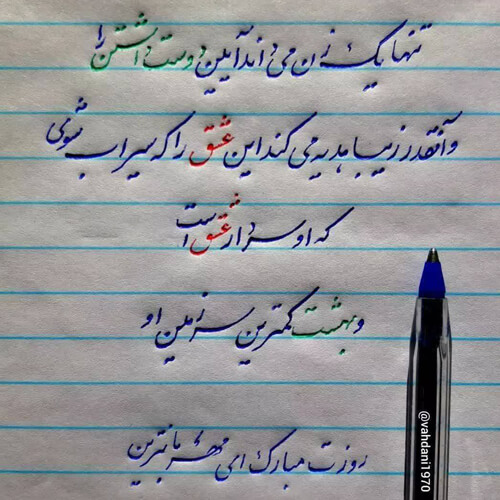 تنها یک زن می داند آیین دوست داشتن را
و آنقدر زیبا هدیه می کند این عشق را که سیراب شوی
که او سردار عشق است
و بهشت کمترین سرزمین او
روزت مبارک ای مهربانترین
@vahdani1970